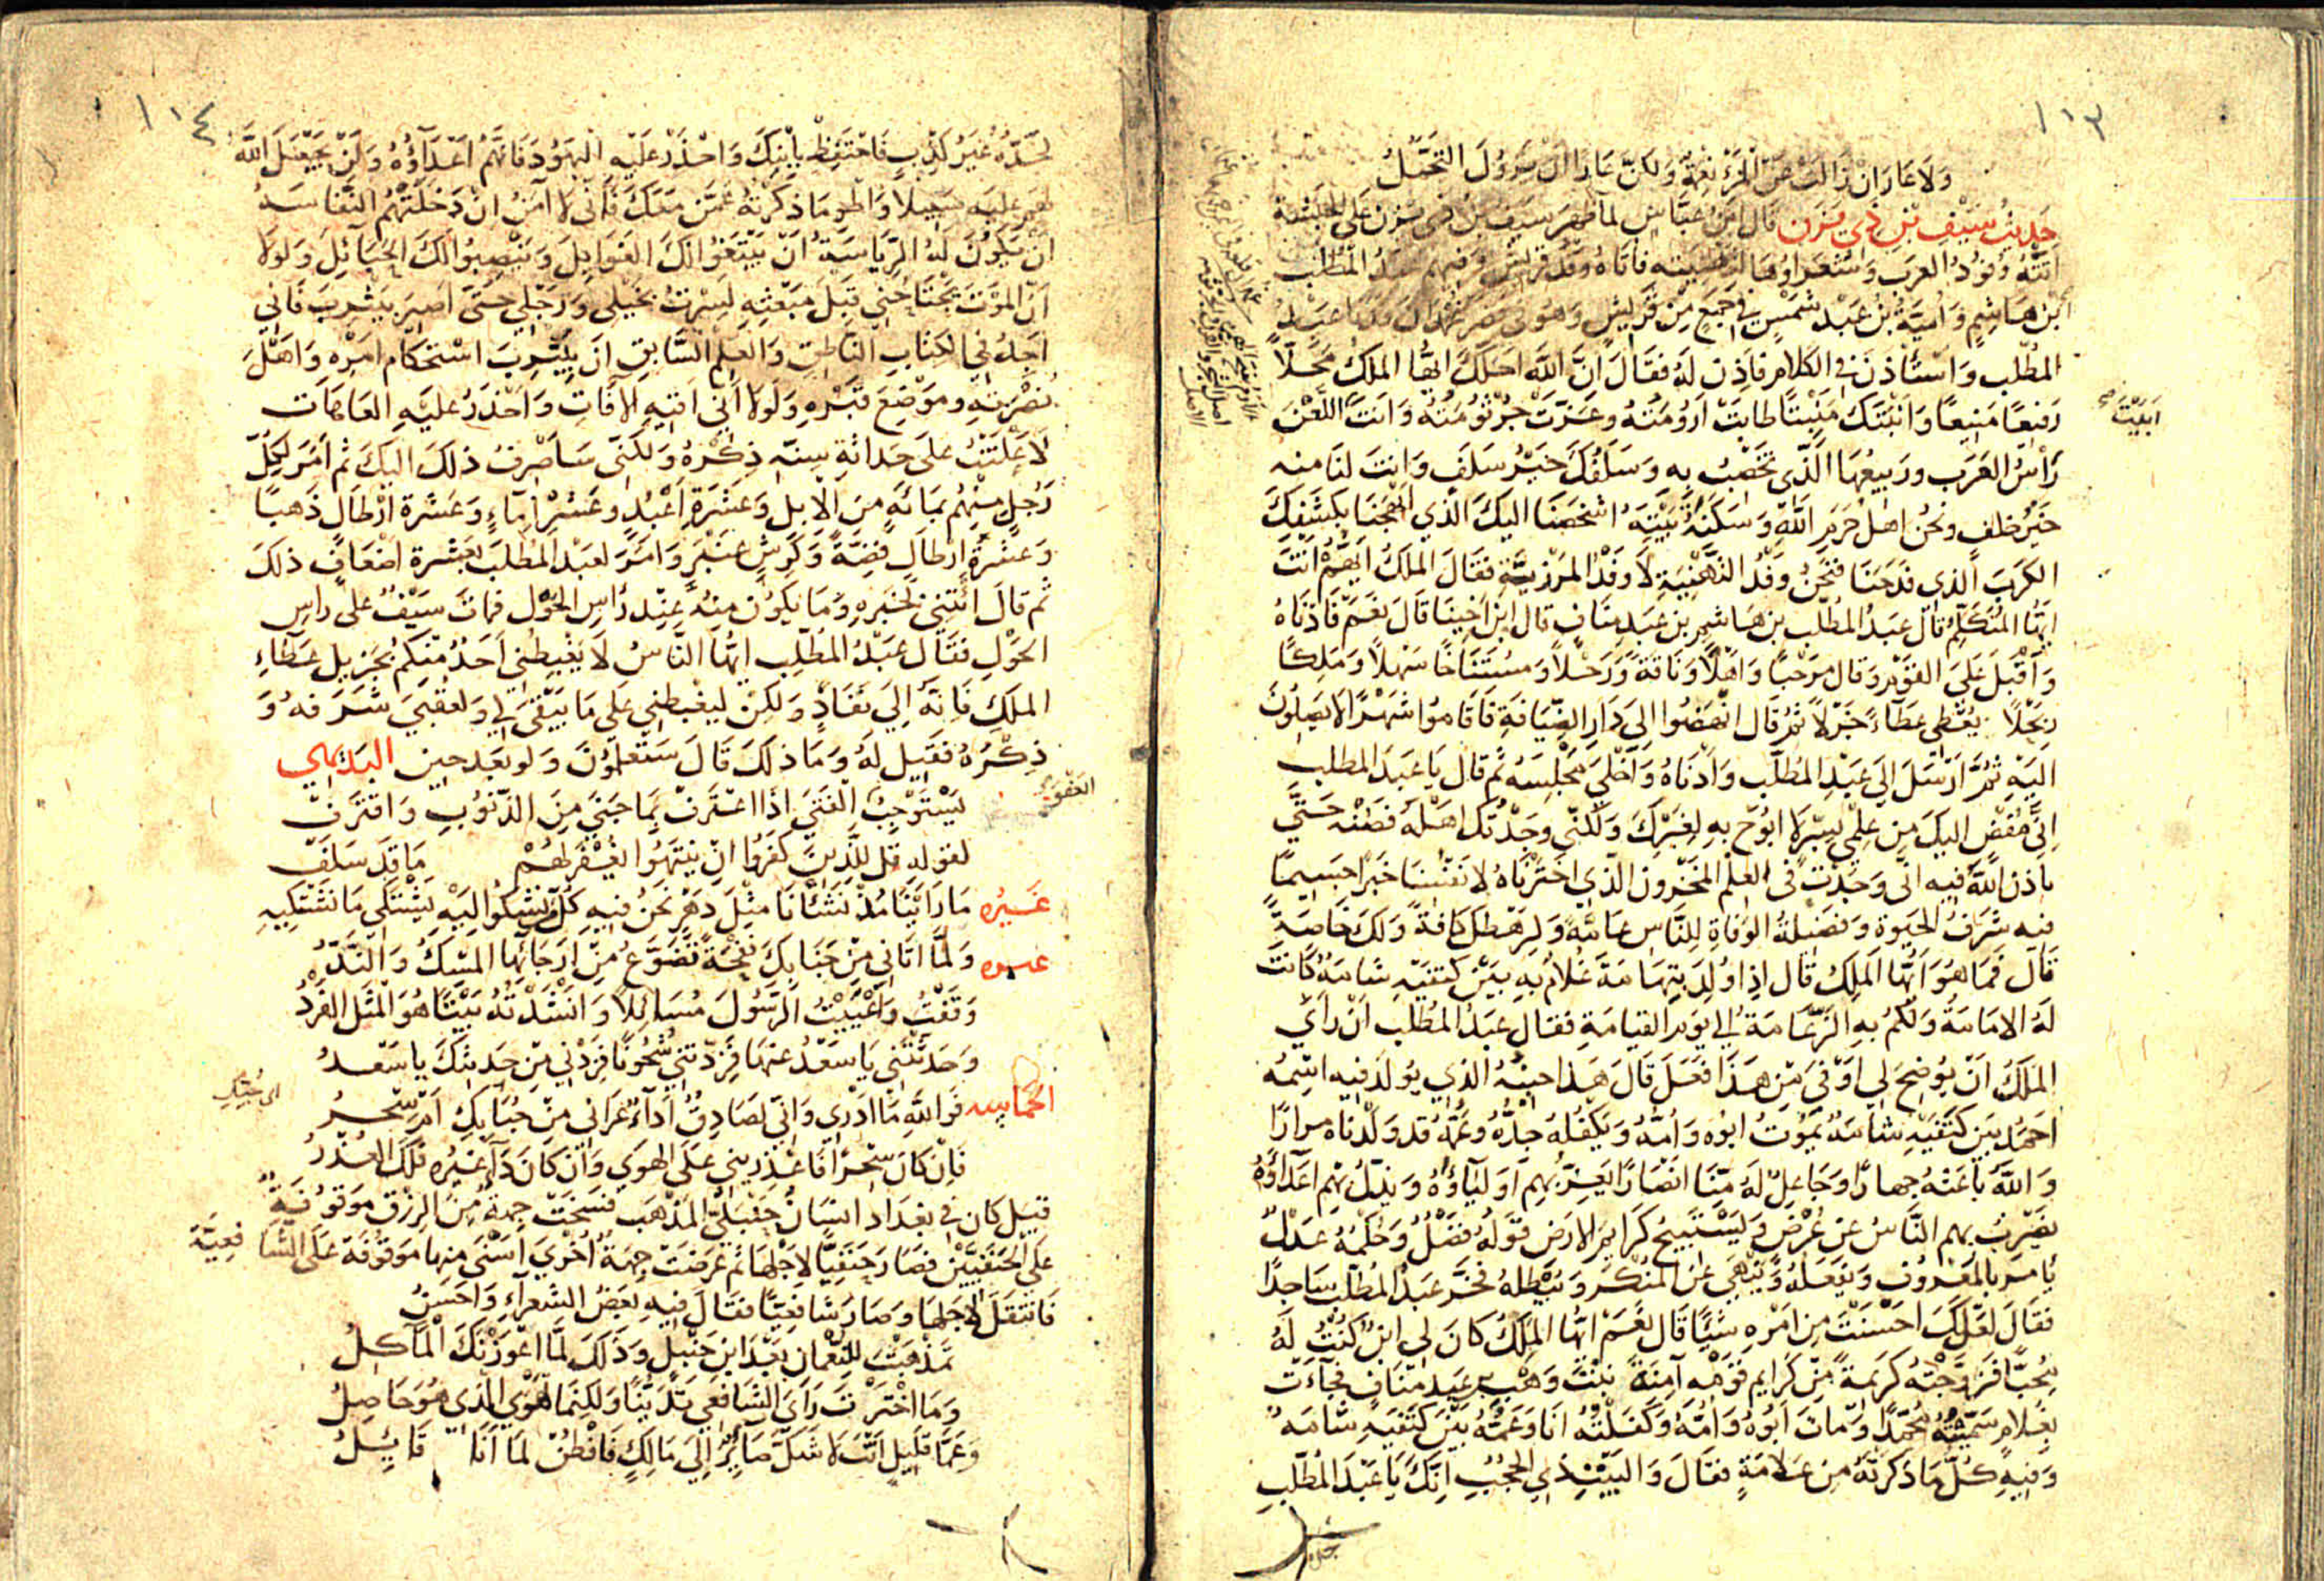 ١١٣
ولا عار ان زالت عن المرء نعمة ولكن عارا ان يزول التجمل
حديث سيف بن ذي يزن قال ابن عباس لما ظهر سيف بن ذي يزن على الحبشة
اتته وفود العرب وشعراؤها لتهنيته فاتاه وفد قريش وفيهم عبد المطلب
ابن هاشم وامية بن عبد شمس في جمع من قريش وهو في قصر غمدان فدنا عبد
المطلب واستأذن في الكلام فاذن له فقال ان الله احلك ايها الملك محلا
رفيعا منيعا وانبتك منبتا طابت ارومته وعزت جرثومته وانت اللعن
ابيت صح
رأس العرب وربيعها الذي تخصب به وسلفك خير سلف وانت لنا منه
خير خلف ونحن اهل حرم الله وسكنة بيته اشخصنا اليك الذي ابهجنا بكشفك
الكرب الذي فدحنا فنحن وفد التهنية لا وفد المرزية فقال الملك ايهم انت
ايها المتكلم قال عبد المطلب بن هاشم بن عبد مناف قال ابن اختنا قال نعم فادناه
واقبل على القوم وقال مرحبا واهلا وناقة ورحلا ومستناخا سهلا وملكا
ربحلا يعطى عطاء جزلا ثم قال انهضوا الى دار الضيافة فاقاموا شهرا لا يصلون
اليه ثم ارسل الى عبد المطلب وادناه واخلى مجلسه ثم قال يا عبد المطلب
اني مفض اليك من علمي بسر لا ابوح به لغيرك ولكني وجدتك اهله فصنه حتى
ياذن الله فيه اني وجدت في العلم المخزون الذي اخترناه لانفسنا خبرا جسيما
فيه شرف الحيوة وفضيلة الوفاة للناس عامة ولرهطك كافة ولك خاصة
قال فما هو ايها الملك قال اذا ولد بتهامة غلام به بين كتفيه شامة كانت
له الامامة ولكم به الزعامة الى يوم القيامة فقال عبد المطلب ان رأى
الملك ان يوضح لي اوفى من هذا فعل قال هذا حينه الذي يولد فيه اسمه
احمد بين كتفيه شامة يموت ابوه وامه ويكفله جده وعمه قد ولدناه مرارا
والله باعثه جهارا وجاعل له منا انصارا يعز بهم اولياؤه ويذل بهم اعداؤه
يضرب بهم الناس عن عرض ويستبيح كرايم الارض قوله فصل وحكمه عدل
يامر بالمعروف ويفعله وينهى عن المنكر ويبطله فخر عبد المطلب ساجدا
فقال لعلك احسنت من امره شيئا قال نعم ايها الملك كان لي ابن كنت له
محبا فزوجته كريمة من كرايم قومه آمنة بنت وهب بن عبد مناف فجاءت
بغلام سميته محمدا ومات ابوه وامه وكفلته انا وعمه بين كتفيه شامة
وفيه كل ما ذكرته من علامة فقال والبيت ذي الحجب انك يا عبد المطلب
١١٤
لجده غير كذب فاحتفظ بابنك واحذر عليه اليهود فانهم اعداؤه ولن يجعل الله
لهم عليه سبيلا واطو ما ذكرته عمن معك فاني لا آمن ان دخلتهم النفاسة
ان يكون له الرياسة ان يبتغوا لك الغوايل وينصبوا لك الحبائل ولولا
ان الموت يجتاحني قبل مبعثه لسرت بخيلى ورجلى حتى اصير بيثرب فاني
اجد في الكتاب الناطق والعلم السابق ان بيثرب استحكام امره واهل
نصرته وموضع قبره ولولا اني اقيه الافات واحذر عليه العاهات
لاعلنت على حداثة سنه ذكره ولكني ساصرف ذلك اليك ثم امر لكل
رجل منهم بمائة من الابل وعشرة اعبد وعشر اماء وعشرة ارطال ذهبا
وعشرة ارطال فضة وكرش عنبر وامر لعبد المطلب بعشرة اضعاف ذلك
ثم قال ائتني بخبره وما يكون منه عند راس الحول فمات سيف على راس
الحول فقال عبد المطلب ايها الناس لا يغبطني احد منكم بجزيل عطاء
الملك فانه الى نفاد ولكن ليغبطني على ما يبقى لي ولعقبي شرفه و
ذكره فقيل له وما ذلك قال ستعلمون ولو بعد حين البديهي
يستوجب الفتى اذا اعترف بما جنى من الذنوب واقترف
العفو
لقوله قل للذين كفروا ان ينتهوا يغفر لهم ما قد سلف
غيره ما راينا مذ نشأنا مثل دهر نحن فيه كل من نشكو اليه يشتكي ما نشتكيه
غيره ولما اتاني من جنابك نفحة تضوع من ارجائها المسك والند
وقفت واعييت الرسول مسائلا وانشدته بيتا هو المثل الفرد
وحدثتني يا سعد عنها فزدتني شجونا فزدني من حديثك يا سعد
الحماسه فوالله ما ادري واني لصادق أداء عراني من حبابك ام سحر
اي حبك
فان كان سحرا فاعذريني على الهوى وان كان داء غيره فلك العذر
قيل كان في بغداد انسان حنبلي المذهب فسنحت جهة من الرزق موقوفة
على الحنفيين فصار حنفيا لاجلها ثم عرضت جهة اخرى اسنى منها موقوفة على الشافعية
فانتقل لاجلها وصار شافعيا فقال فيه بعض الشعراء واحسن
تمذهبت للنعمان بعد ابن حنبل وذلك لما اعوزتك المآكل
وما اخترت رأى الشافعي تدينا ولكنما تهوى الذي هو حاصل
وعما قليل انت لا شك صاير الى مالك فافطن لما انا قائل